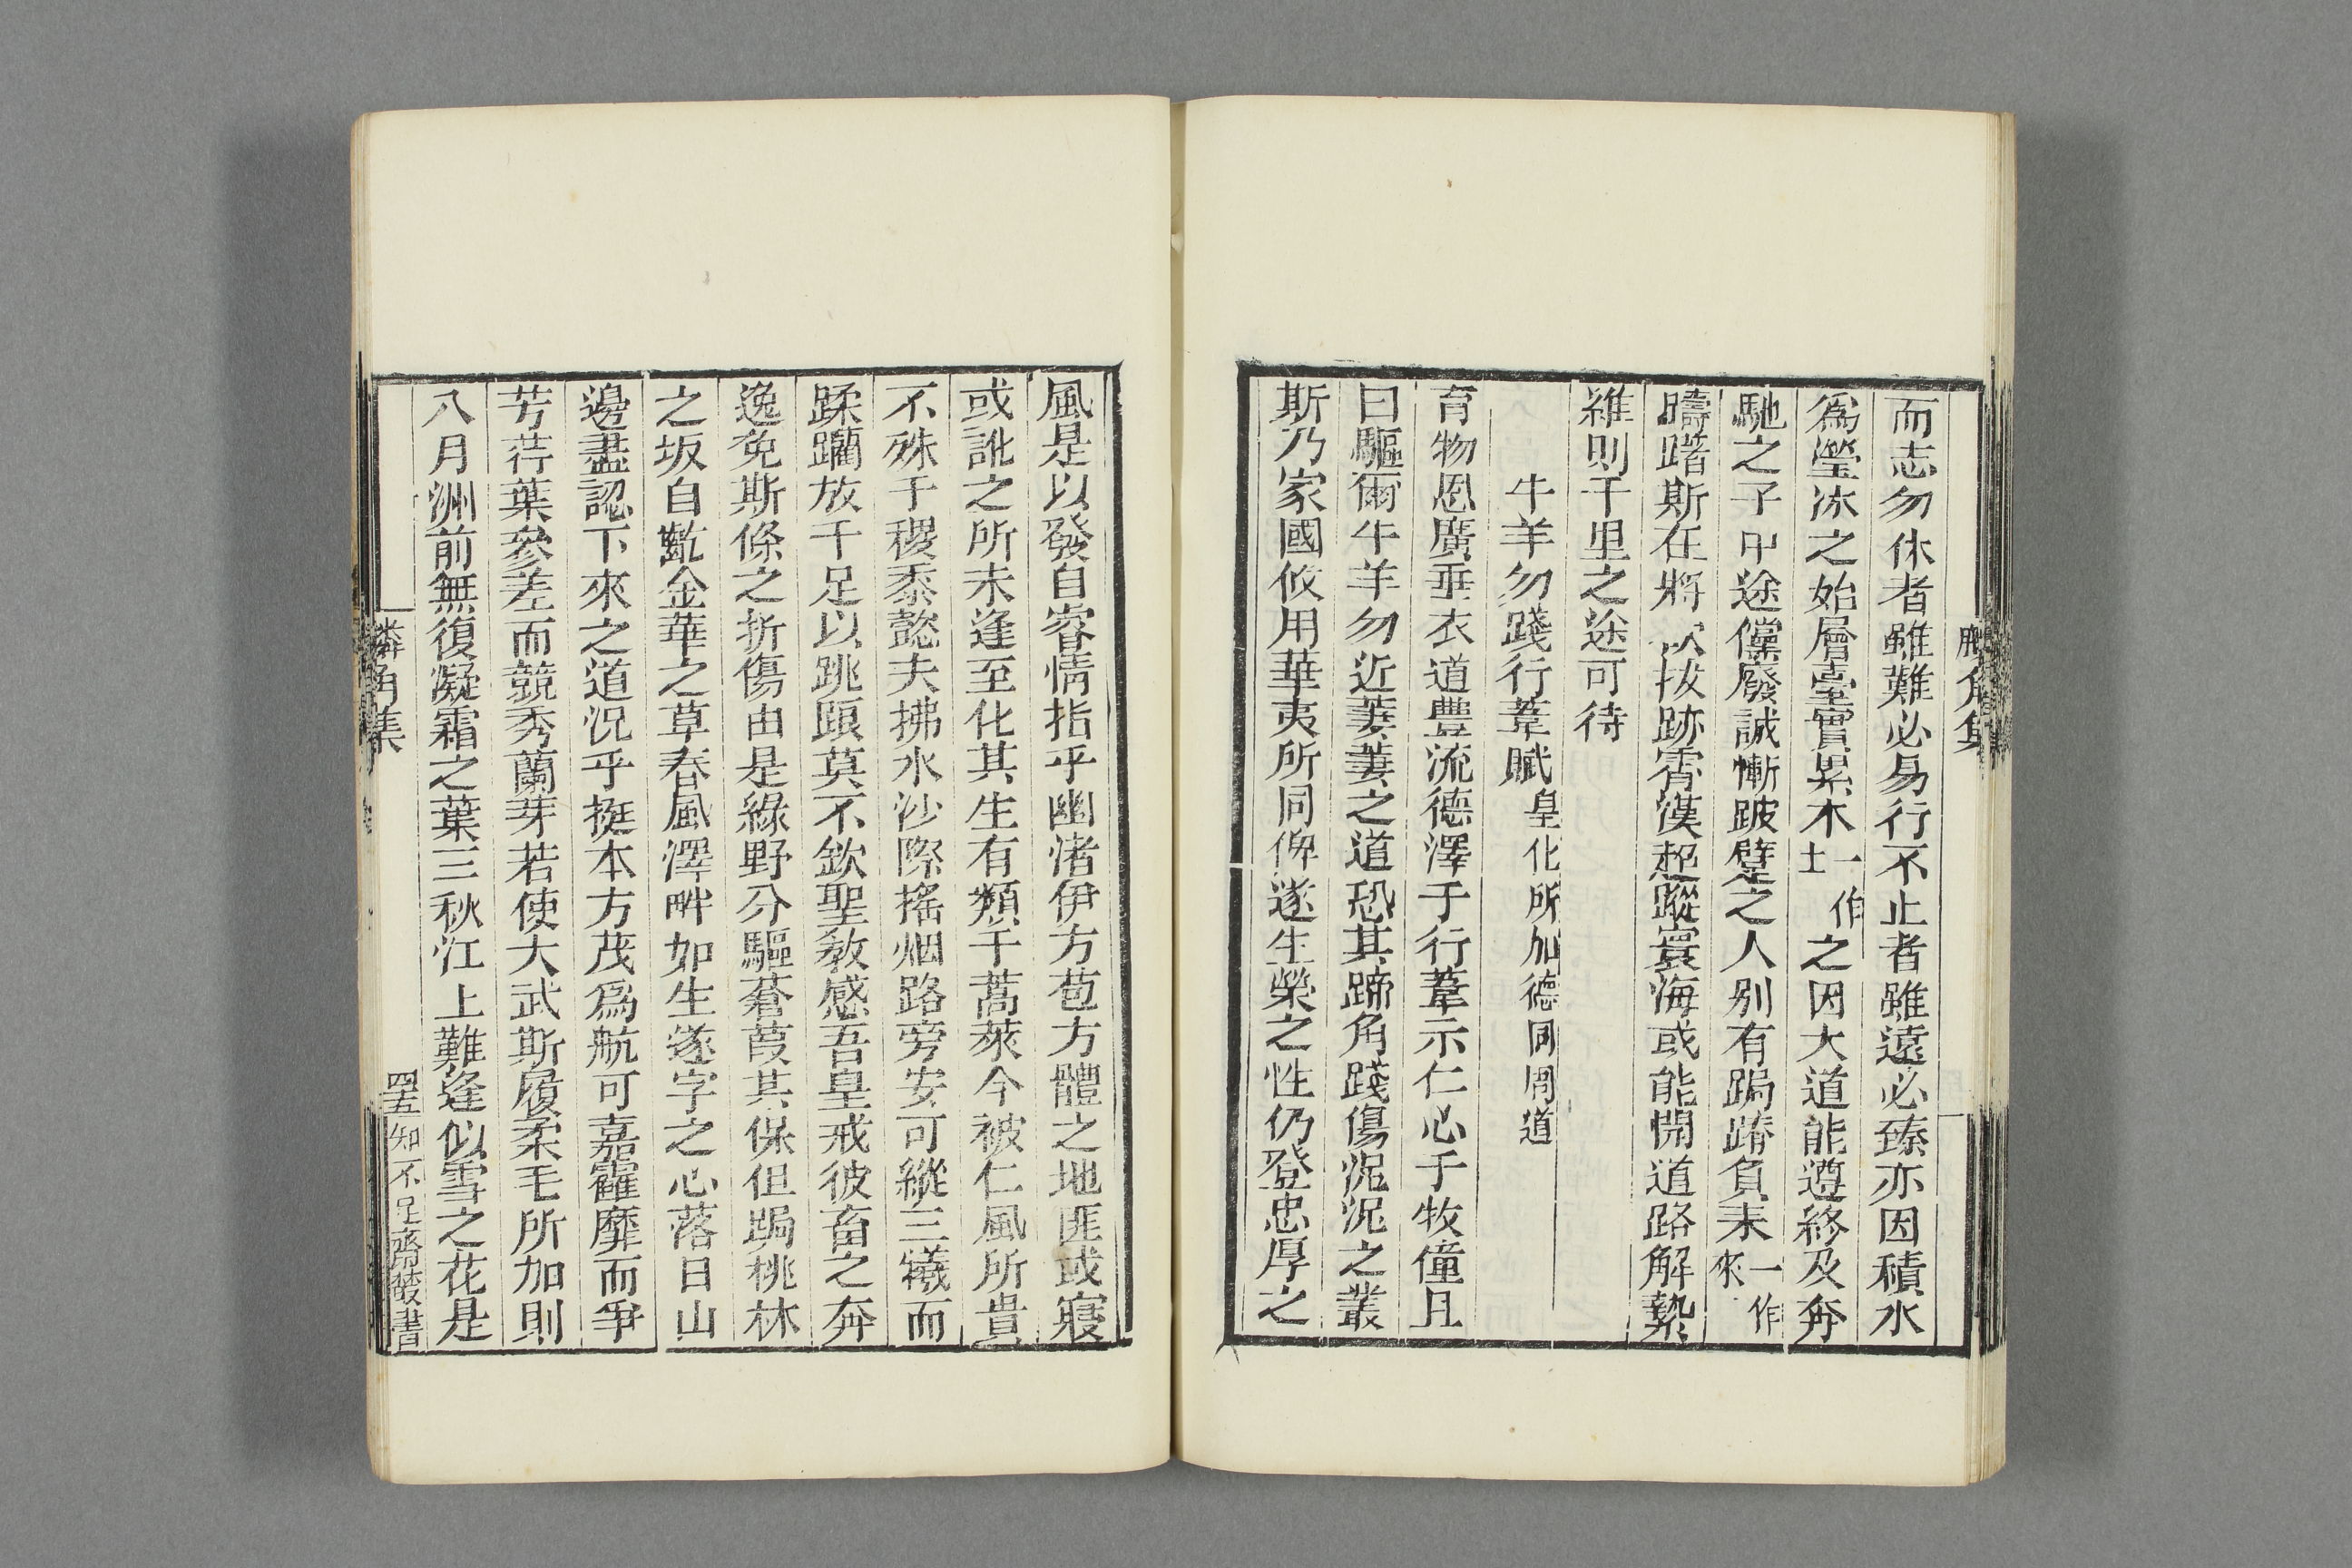 而志勿休者雖難必易行不止者雖遠必臻亦因積水
爲瀅冰之始層臺實累木一作土之因大道能遵終及奔
馳之子中途儻廢誠慚跛躄之人別有跼蹐負耒一作來
躊躇斯在將以拔跡霄漢超蹤寰海或能開道路解縶
維則千里之途可待
牛羊勿踐行葦賦皇化所加德同周道
育物恩廣垂衣道豊流德澤于行葦示仁心于牧僮且
曰驅爾牛羊勿近萋萋之道恐其蹄角踐傷泥泥之叢
斯乃家國攸用華夷所同俾遂生榮之性仍登忠厚之
風是以發自睿情指乎幽渚伊方苞方體之地匪或寢
或訛之所未逢至化其生有類于蒿萊今被仁風所貴
不殊于稷黍懿夫拂水沙際搖烟路旁安可縱三犧而
蹂躪放千足以跳踉莫不欽聖教感吾皇戒彼畜之奔
逸免斯條之折傷由是綠野分驅蒼葭其保但跼桃林
之坂自齕金華之草春風澤畔如生遂字之心落日山
邊盡認下來之道況乎挺本方茂爲航可嘉靃靡而爭
芳荇葉參差而競秀蘭芽若使大武斯履柔毛所加則
八月洲前無復凝霜之葉三秋江上難逢似雪之花是
麟角集
四五
知不足齋叢書